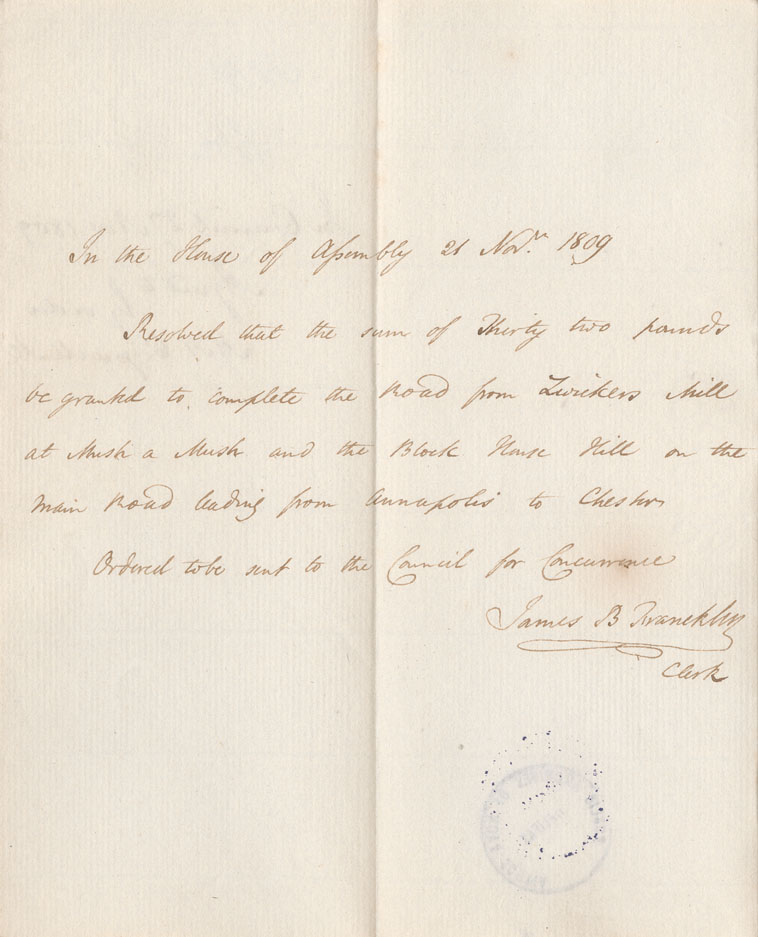 In the House of Assembly 21 Novr. 1809
Resolved that the sum of Thirty two pounds
be granted to complete the Road from Zwickers Mill
at Mush a Mush and the Block House Hill on the
main Road leading from Annapolis to Chester
Ordered to be sent to the Council for Concurrence
James B Franckly
Clerk